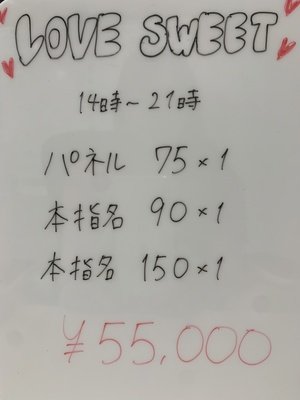 LOVE SWEET
14時～21時
パネル 75×1
本指名 90×1
本指名 150×1
¥55,000